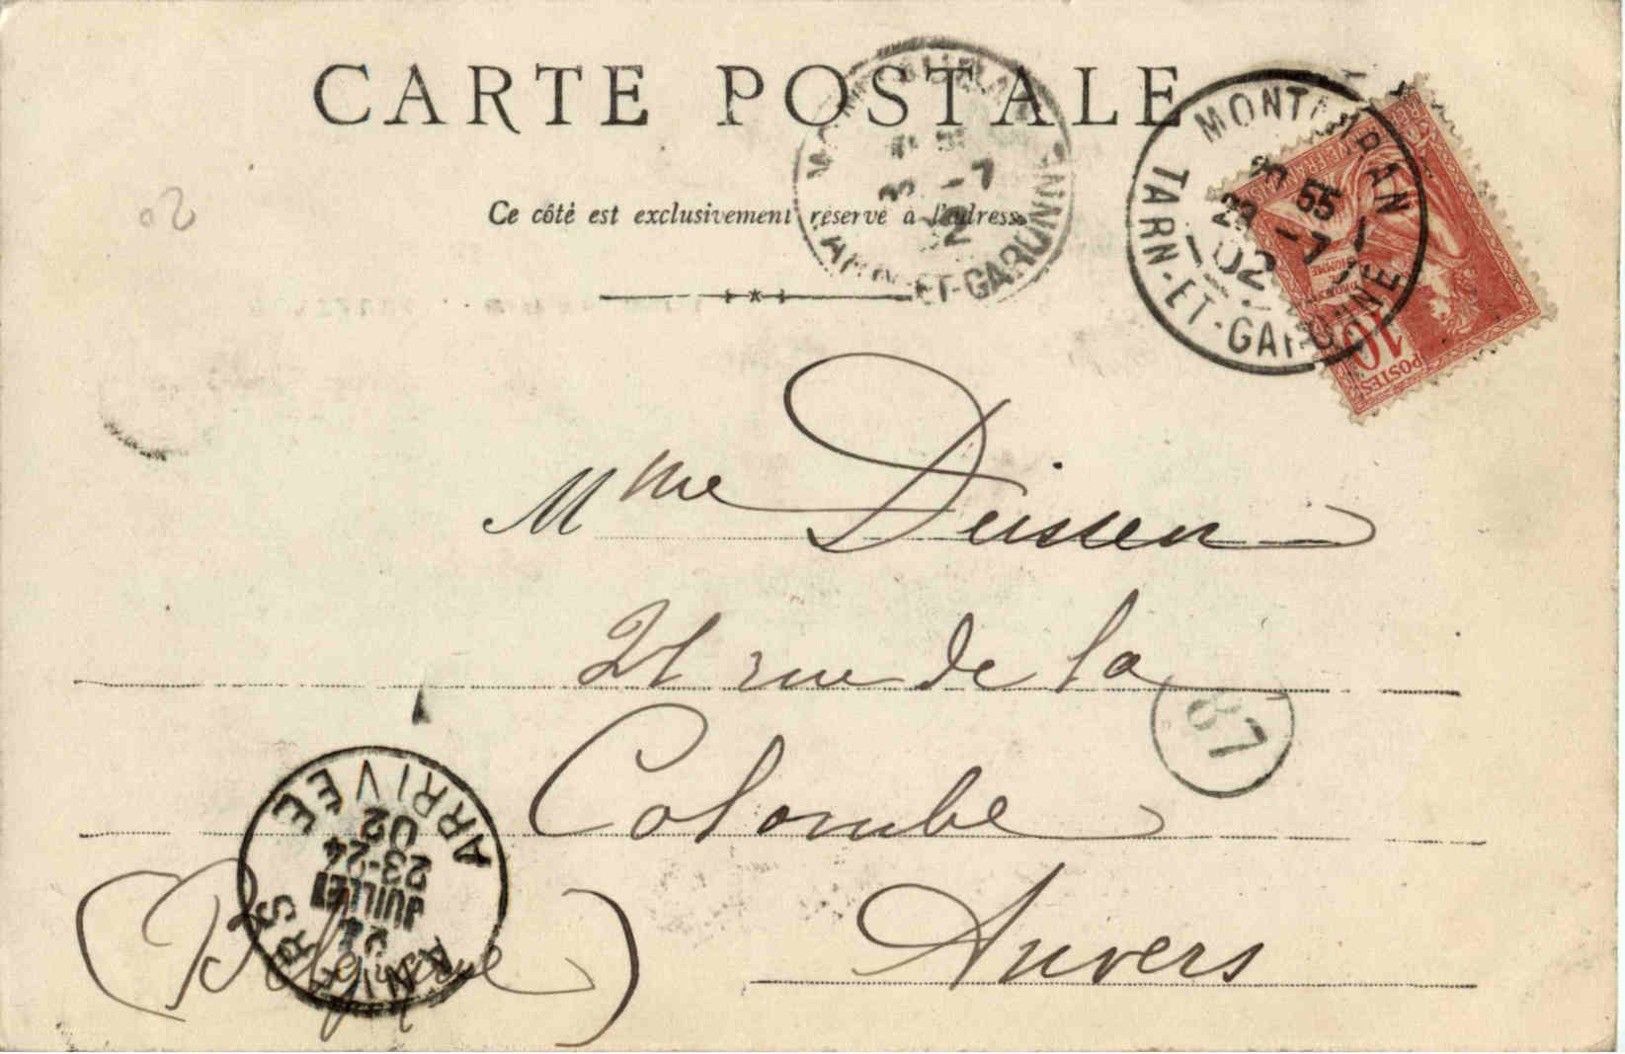 CARTE POSTALE
Ce côté est exclusivement réservé à l'adresse
MONTAUBAN
20 55
23 -7
02
TARN-ET-GARONNE
-7
02
TARN-ET-GARONNE
10
POSTES
02
Mme Deissen
21 rue de la
Colombe
Anvers
(Belgique)
87
ANVERS
24
JUILLET
23-24
02
ARRIVÉE